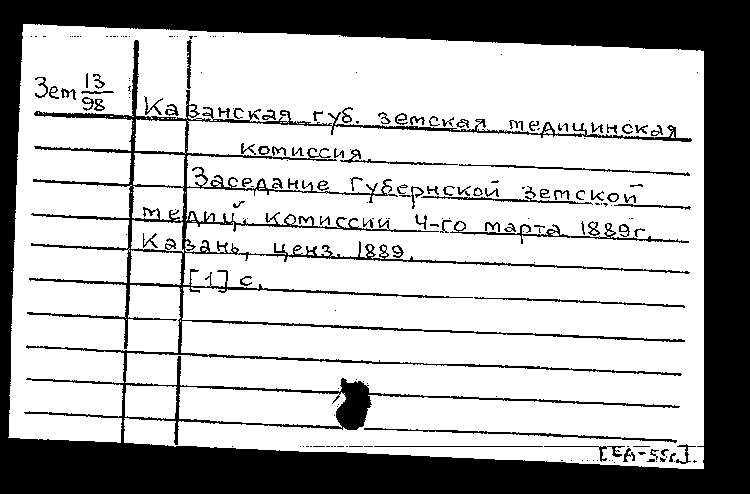 Зем 13/98
Казанская губ. земская медицинская
комиссия.
Заседание Губернской земской
медиц. комиссии 4-го марта 1889г.
Казань, ценз. 1889.
[1] с.